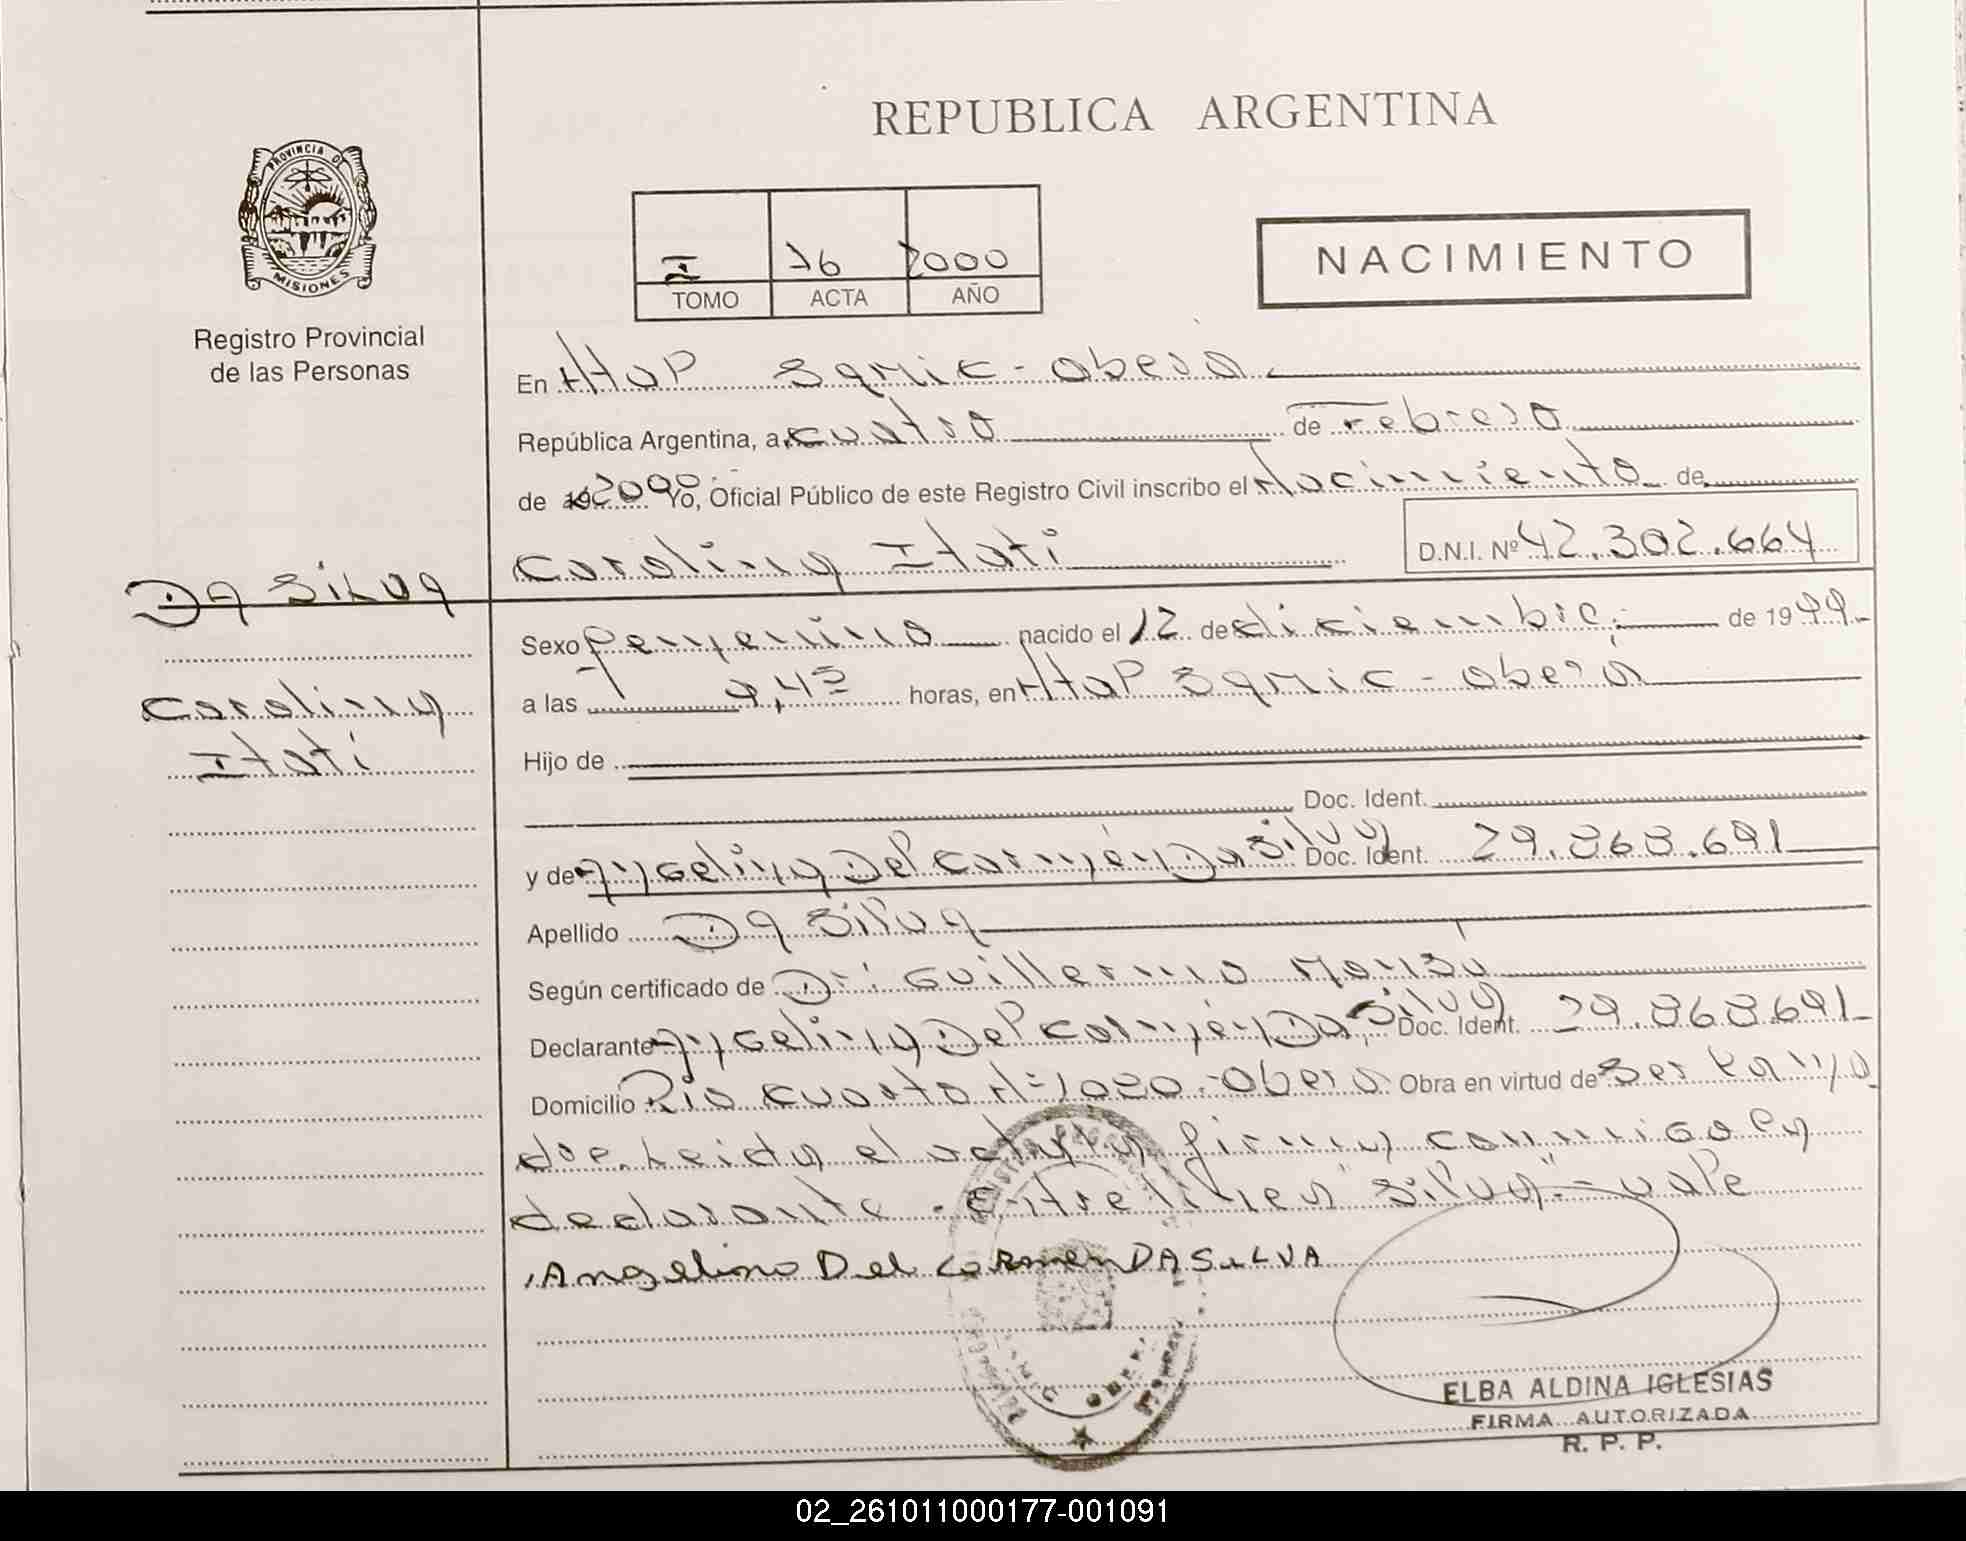 REPUBLICA ARGENTINA
PROVINCIA DE
MISIONES
Registro Provincial
de las Personas
I 76 2000
TOMO ACTA AÑO
NACIMIENTO
En Htap Samic - Oberá
República Argentina, a cuatro de Febrero
de 19 2000 Yo, Oficial Público de este Registro Civil inscribo el Nacimiento de
Carolina Itati D.N.I. Nº 42.302.664
Da Silva
Carolina
Itati
Sexo femenino nacido el 12 de diciembre de 1999
a las 9,45 horas, en Htap Samic - Oberá
Hijo de
Doc. Ident.
y de Angelina Del Carmen Da Silva Doc. Ident. 29.868.691
Apellido Da Silva
Según certificado de Dr. Guillermo
Declarante Angelina Del Carmen Da Silva Doc. Ident. 29.868.691
Domicilio Rio Cuarto Nº 1020 - Oberá Obra en virtud de ser
Leida el acta la firma conmigo la
declarante. Entrelineas "Silva" - vale
Angelina Del Carmen DA SiLVA
ELBA ALDINA IGLESIAS
FIRMA AUTORIZADA
R. P. P.
02_261011000177-001091